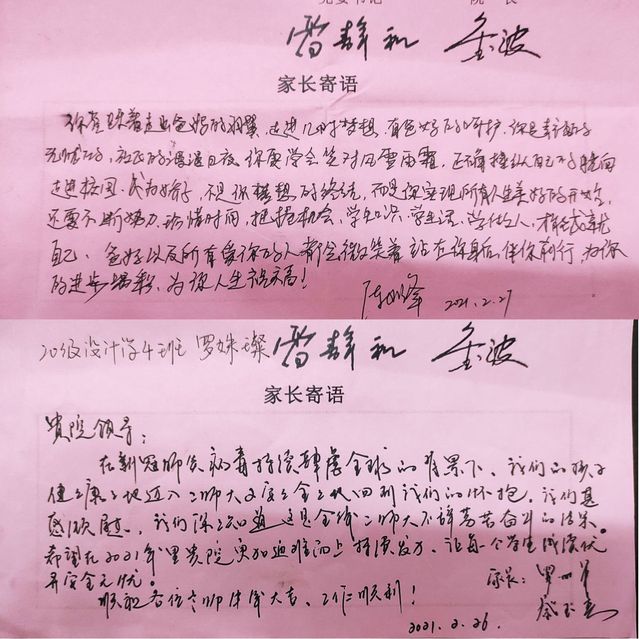 党委书记 院长
曾静和 金波
家长寄语
你曾踩着走出爸妈的羽翼,走进儿时梦想,有爸妈的呵护,你是幸福的
无忧的,社会的漫漫日夜,你要学会笑对风雪雨霜,正确操纵自己的時间
走进校园,成为好,不是你梦想的终结,而是你实现所有人生美好的开始,
还要不断努力,珍惜时间,把握机会,学知识,学生活,学做人,才能成就
自己、爸妈以及所有爱你的人都会微笑着站在你身后,伴你前行,为你
的进步喝彩,为你人生祝福!
峰 2021.2.27
20级设计学4班 罗姝璨 曾静和 金波
家长寄语
贵院领导:
在新冠肺炎病毒持续肆虐全球的背景下,我们的孩子
健健康康地迈入二师大又安安全全地回到我们的怀抱,我们甚
感欣慰,我们深深知道这是全体二师大不辞劳苦奋斗的结果。
希望在2021年里贵院更加迎难而上持续发力,让每一个学生成绩优
异安全无忧。
顺祝各位老师牛年大吉、工作顺利!
家长:罗
2021.2.26.